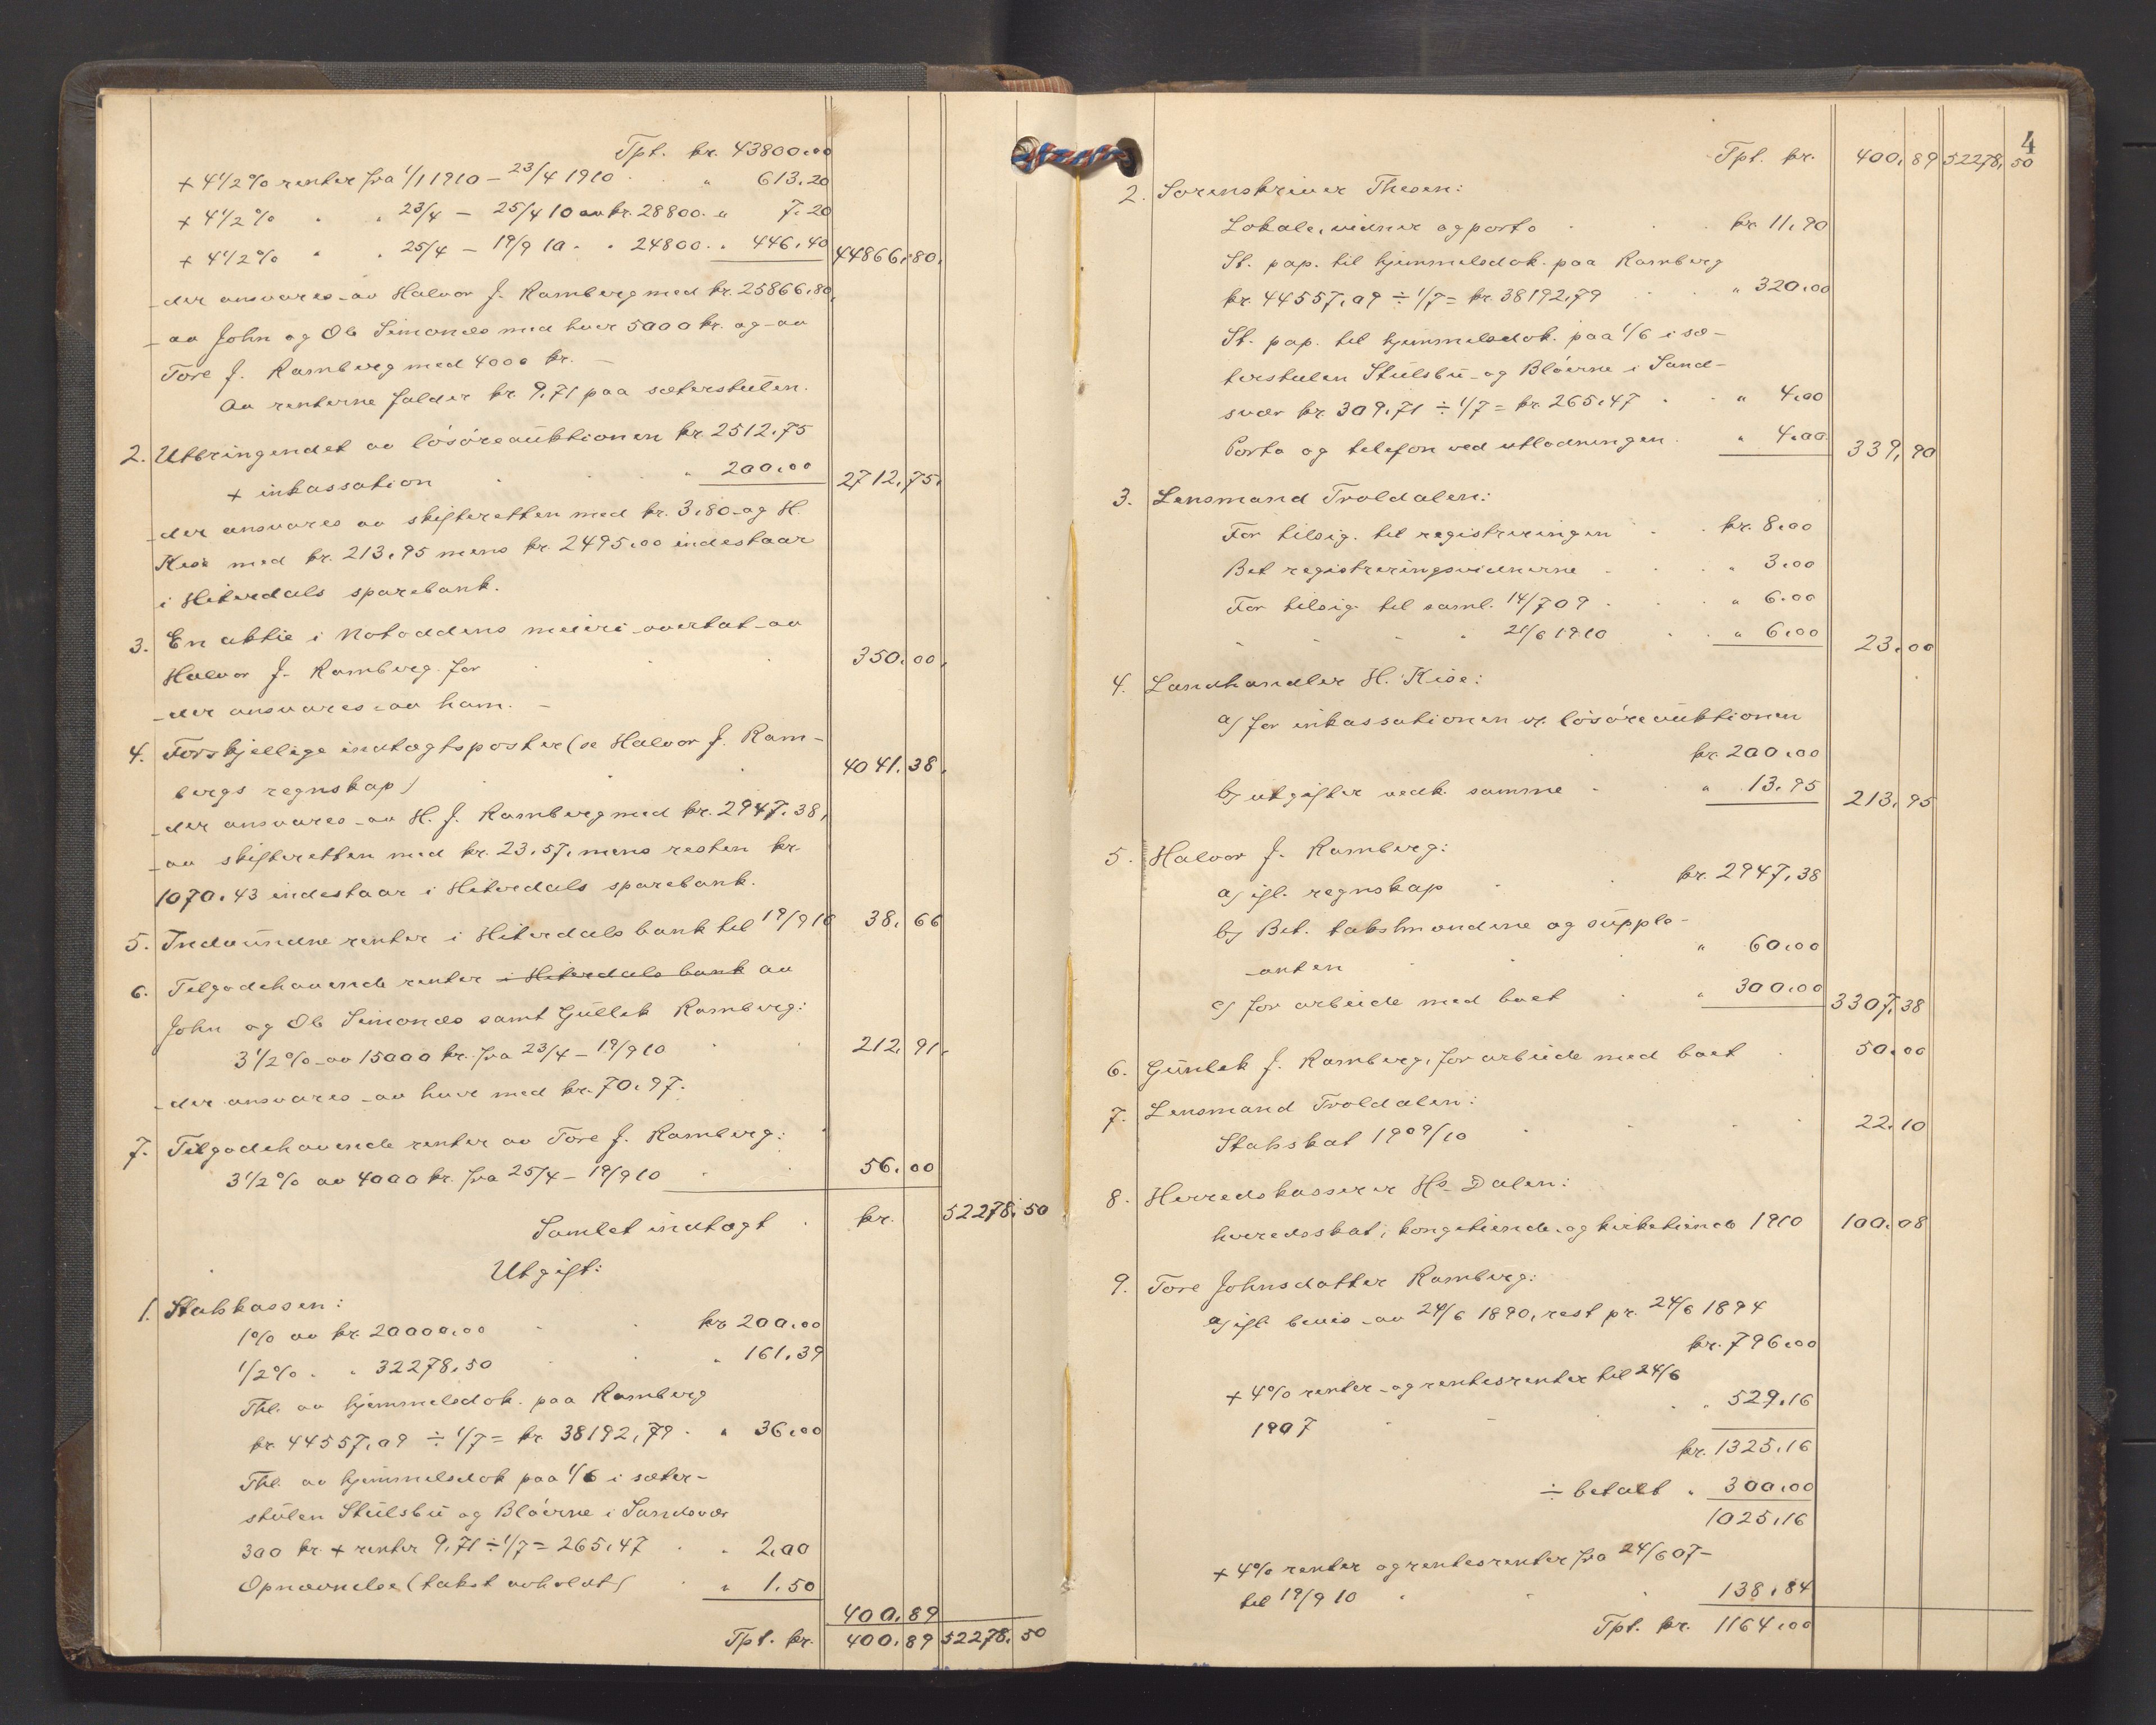 Tpt. kr. 43800.00
+ 4 1/2 % renter fra 1/1 1910 – 23/4 1910 " 613.20
+ 4 1/2 % " " 23/4 – 25/4 10 av kr. 28800. " 7.20
+ 4 1/2 % " " 25/4 – 19/9 10 " " 24800. " 446.40 44866.80.
der ansvares av Halvor J. Ramberg med kr. 25866.80,
av John og Ole Simones med hver 5000 kr. og av
Tore J. Ramberg med 4000 kr. –
Av renterne falder kr. 9.71 paa sæterstulen.
2. Utbringendet av løsøreauktionen kr. 2512.75
+ inkassation " 200.00 2712.75.
der ansvares av skifteretten med kr. 3.80 og H.
Kise med kr. 213.95 mens kr. 2495.00 indestaar
i Hiterdals sparebank.
3. En aktie i Notoddens meieri overtat av
Halvor J. Ramberg for 350.00.
der ansvares av ham. –
4. Forskjellige indtægtsposter (se Halvor J. Ram-
bergs regnskap) 4041.38.
der ansvares av H. J. Ramberg med kr. 2947.38,
av skifteretten med kr. 23.57, mens resten kr.
1070.43 indestaar i Hiterdals sparebank.
5. Indvundne renter i Hiterdals bank til 19/9 10 38.66
6. Tilgodehavende renter i Hiterdals bank av
John og Ole Simones samt Gullek Ramberg:
3 1/2 % av 15000 kr. fra 23/4 – 19/9 10 212.91.
der ansvares av hver med kr. 70.97.
7. Tilgodehavende renter av Tore J. Ramberg:
3 1/2 % av 4000 kr. fra 25/4 – 19/9 10 56.00
Samlet indtægt kr. 52278.50
Utgift:
1. Statskassen:
1 % av kr. 20000.00 kr. 200.00
1/2 % " " 32278.50 " 161.39
Thl. av hjemmelsdok. paa Ramberg
kr. 44557.09 ÷ 1/7 = kr. 38192.79 " 36.00
Thl. av hjemmelsdok paa 1/6 i sæter-
stulen Stulsbu og Bløerne i Sandsvær
300 kr. + renter 9.71 ÷ 1/7 = 265.47 " 2.00
Opnævnelse (takst avholdt) " 1.50
400.89
Tpt. kr. 400.89 52278.50
4
Tpt. kr. 400.89 52278.50
2. Sorenskriver Thesen:
Lokale, vidner og porto kr. 11.90
St. pap. til hjemmelsdok. paa Ramberg
kr. 44557.09 ÷ 1/7 = kr. 38192.79 " 320.00
St. pap. til hjemmelsdok. paa 1/6 i sæ-
terstulen Stulsbu og Bløerne i Sand-
svær kr. 309.71 ÷ 1/7 = kr. 265.47 " 4.00
Porto og telefon ved utlodningen " 4.00 339.90
3. Lensmand Troldalen:
For tilsig. til registreringen kr. 8.00
Bet registreringsvidnerne " 3.00
For tilsig. til saml. 14/7 09 " 6.00
" " " " 21/6 1910 " 6.00 23.00
4. Landhandler H. Kise:
a) for inkassationen v. løsøreauktionen
kr. 200.00
b) utgifter vedk. samme " 13.95 213.95
5. Halvor J. Ramberg:
a) ifl. regnskap kr. 2947.38
b) Bet. takstmændene og supple-
anten " 60.00
c) for arbeide med boet " 300.00 3307.38
6. Gunlek J. Ramberg, for arbeide med boet 50.00
7. Lensmand Troldalen:
Statsskat 1909/10 22.10
8. Herredskasserer Hs. Dalen:
herredsskat, kongetiende og kirketiende 1910 100.08
9. Tore Johnsdatter Ramberg:
a) ifl. bevis av 24/6 1890, rest pr. 24/6 1894
kr. 796.00
+ 4 % renter og rentesrenter til 24/6
1907 " 529.16
kr. 1325.16
÷ betalt " 300.00
1025.16
+ 4 % renter og rentesrenter fra 24/6 07 –
til 19/9 10 138.84
Tpt. kr. 1164.00